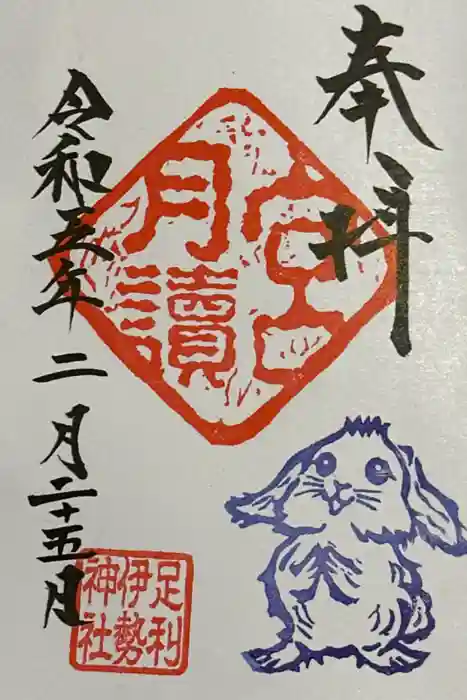 奉拝
宮
月讀
令和五年二月二十五日
足利
伊勢
神社